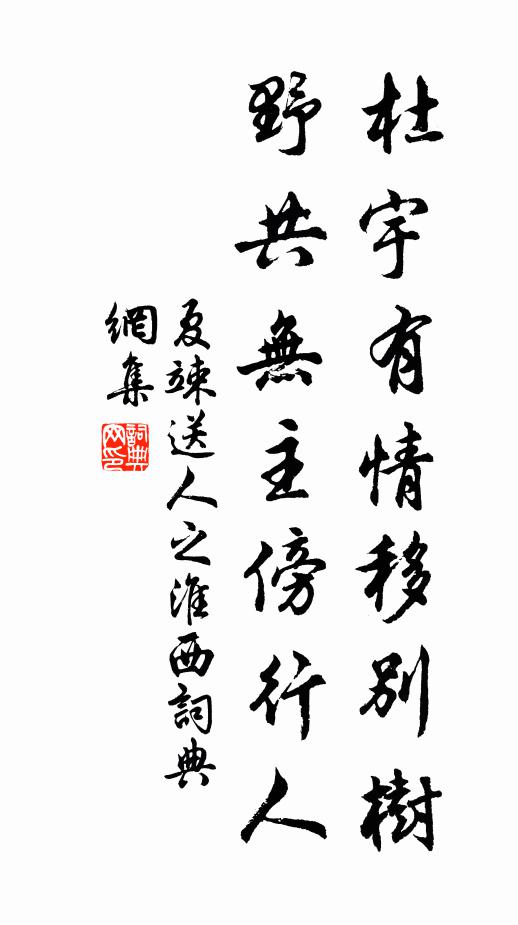 杜宇有情移別樹
野共無主傍行人
夏竦送人之淮西詞典
網集
詞典网印